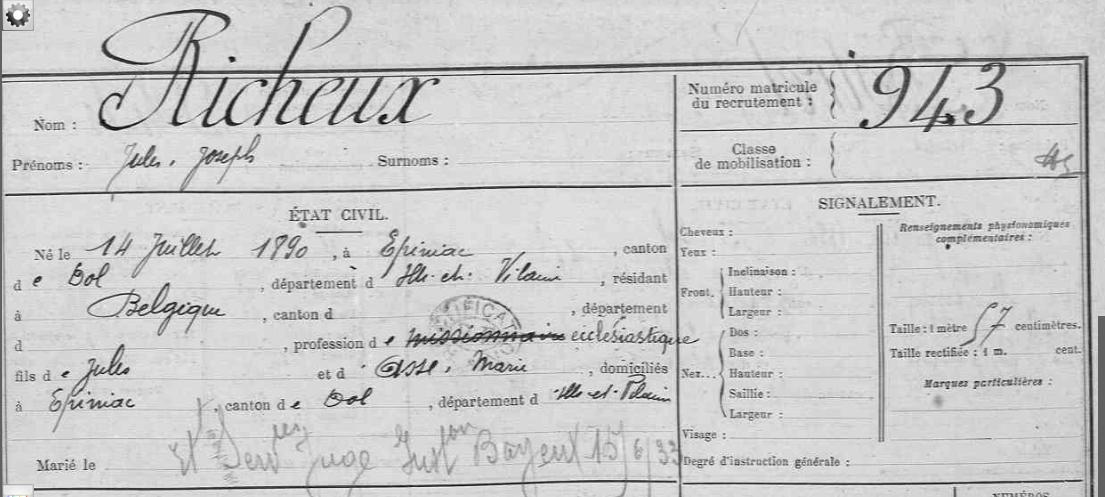 Richeux
Nom :
Prénoms : Jules, Joseph Surnoms :
Numéro matricule
du recrutement : 943
Classe
de mobilisation :
ÉTAT CIVIL.
Né le 14 Juillet 1890, à Epiniac, canton
de Dol, département d Ille-et-Vilaine, résidant
à Belgique, canton d , département
d , profession de missionnaire ecclésiastique
fils de Jules et d Asse, Marie, domiciliés
à Epiniac, canton de Dol, département d Ille-et-Vilaine
Marié le
SIGNALEMENT.
Cheveux :
Yeux :
Front. Inclinaison :
Hauteur :
Largeur :
Nez... Dos :
Base :
Hauteur :
Saillie :
Largeur :
Visage :
Degré d'instruction générale :
Renseignements physionomiques
complémentaires :
Taille : 1 mètre 57 centimètres.
Taille rectifiée : 1 m. cent.
Marques particulières :
NUMÉROS